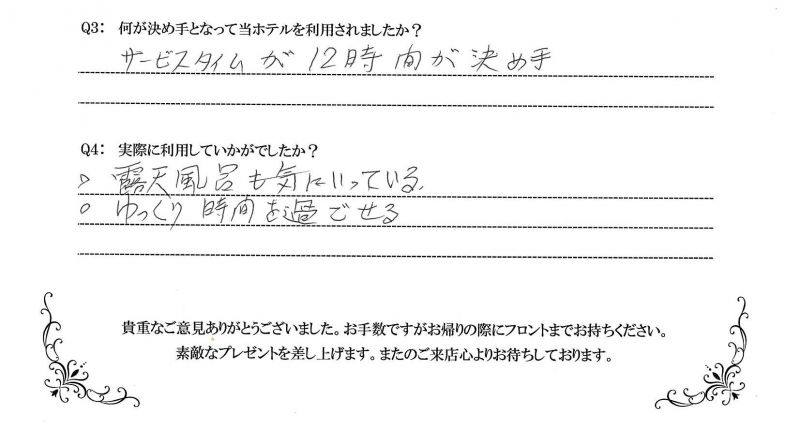 Q3: 何が決め手となって当ホテルを利用されましたか？
サービスタイムが12時間が決め手
Q4: 実際に利用していかがでしたか？
○ 露天風呂も気にいっている。
○ ゆっくり時間を過ごせる
貴重なご意見ありがとうございました。お手数ですがお帰りの際にフロントまでお持ちください。
素敵なプレゼントを差し上げます。またのご来店心よりお待ちしております。